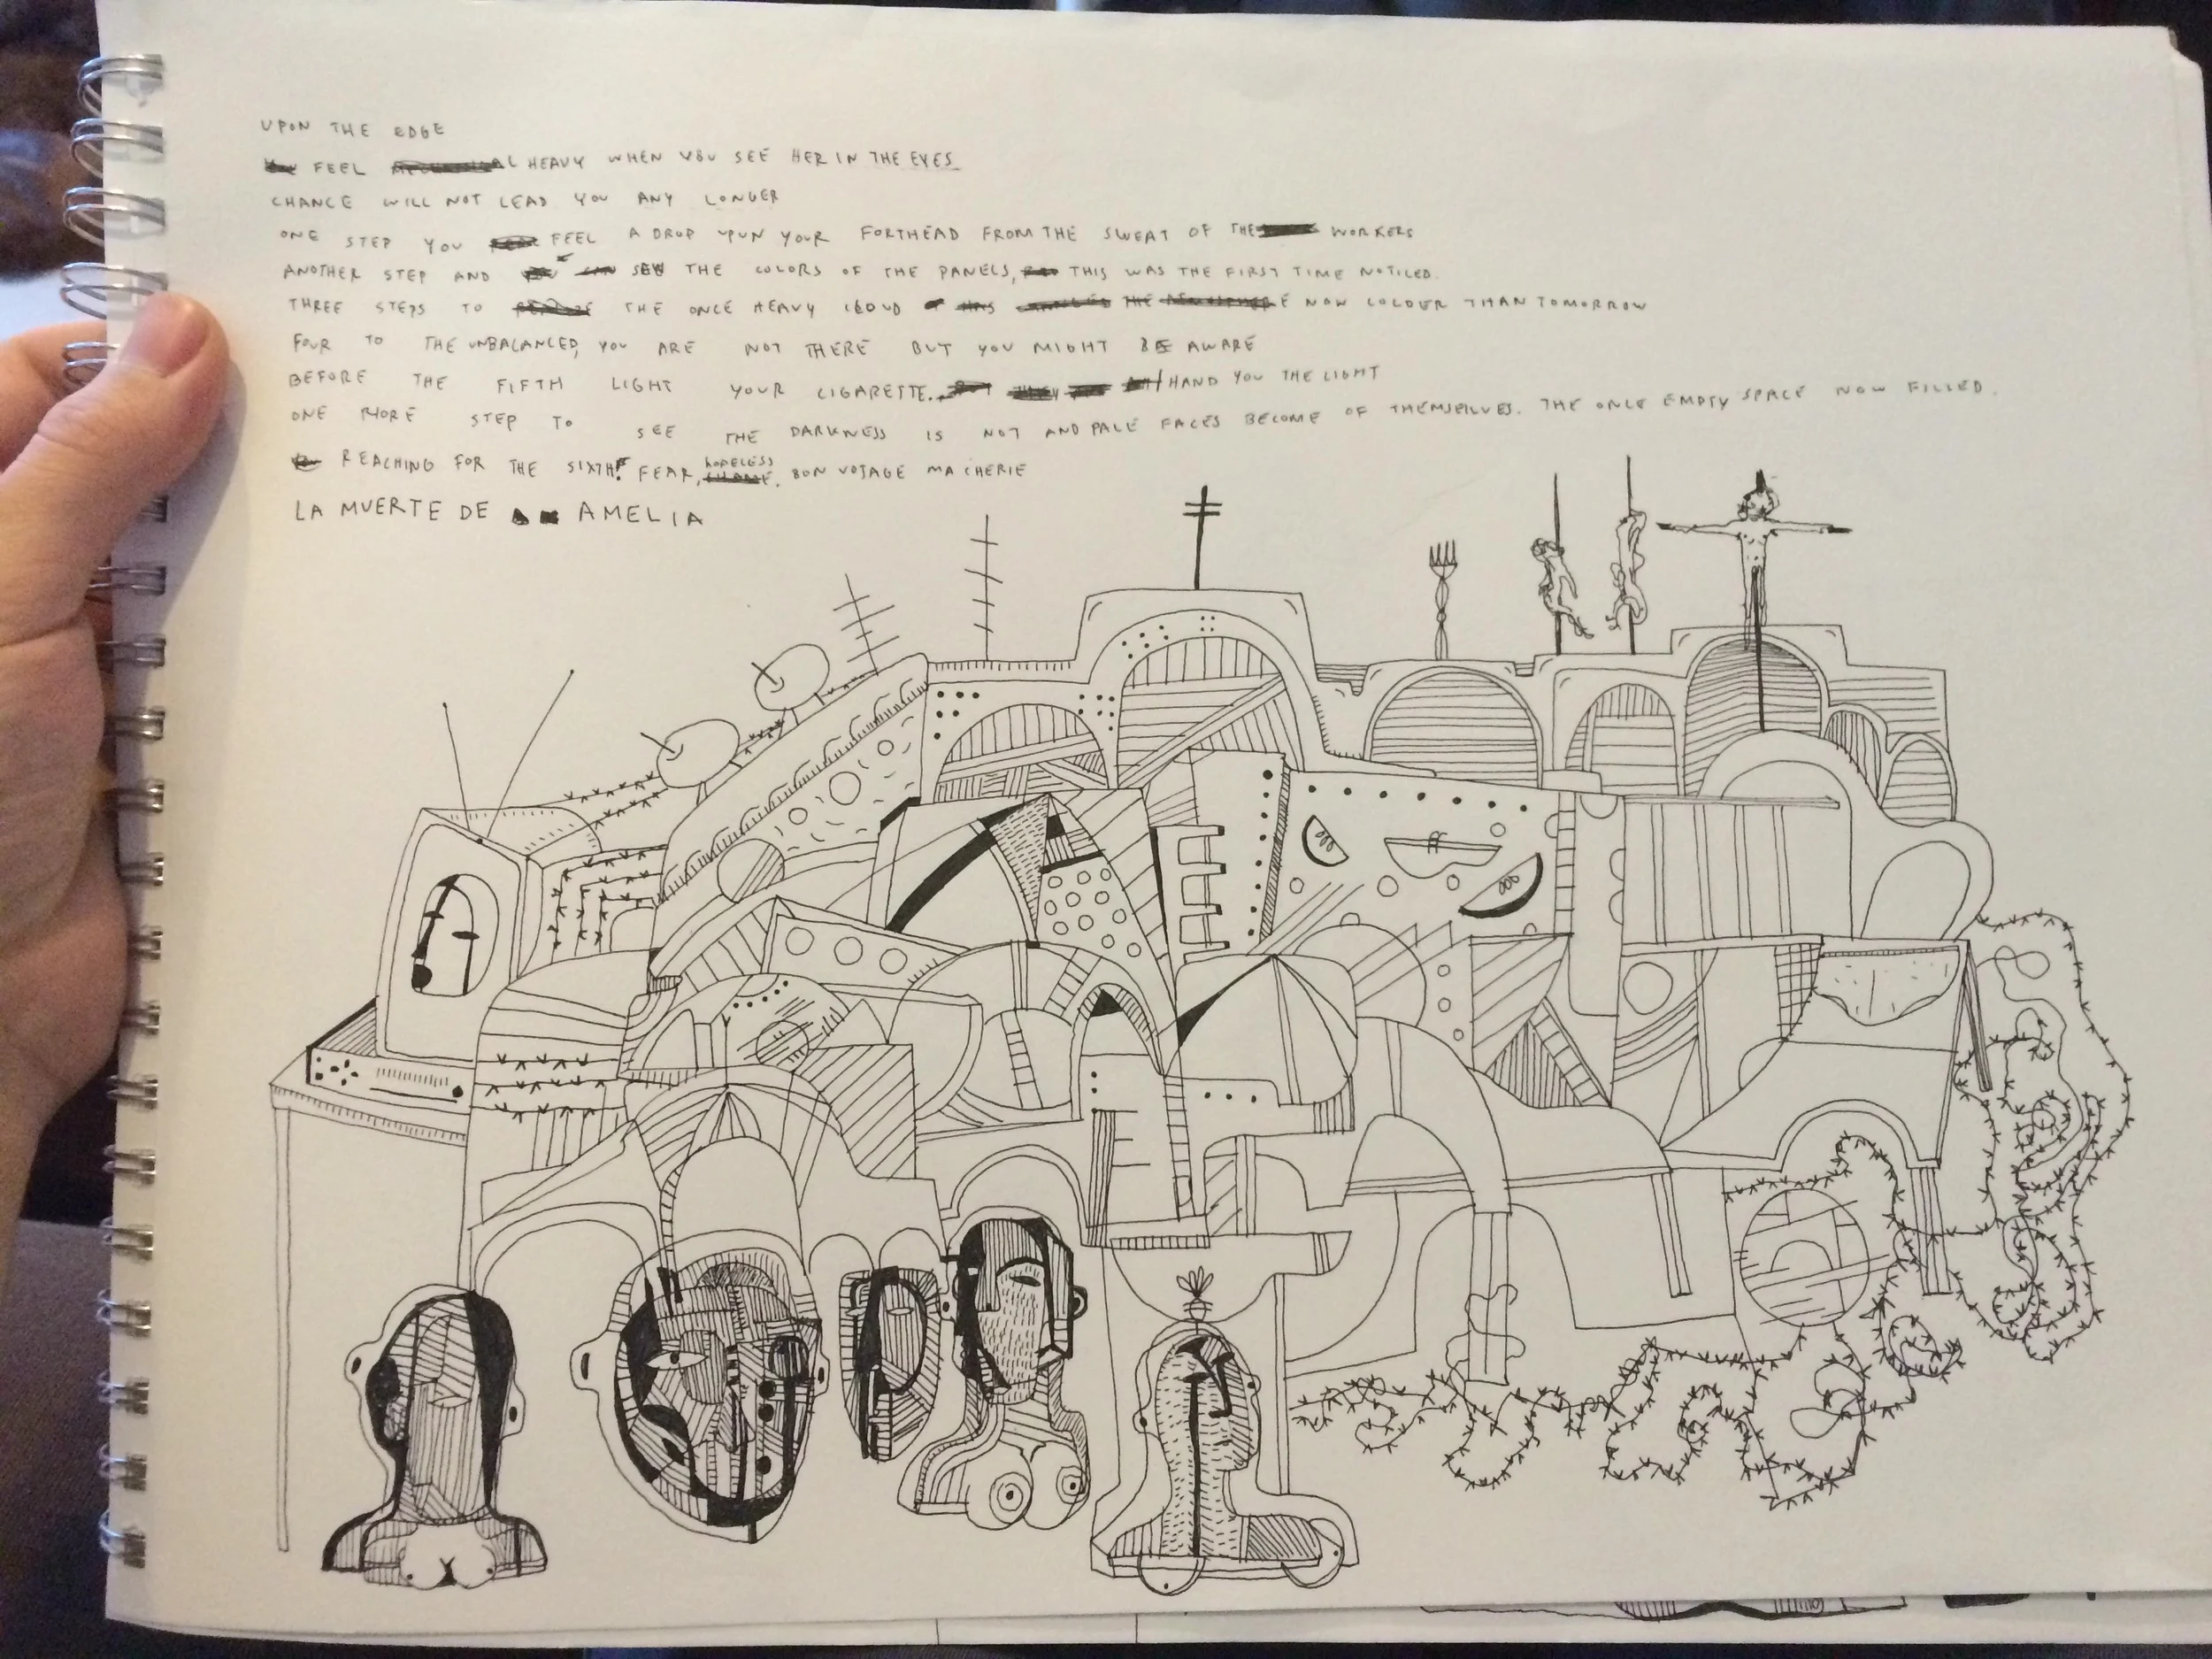 UPON THE EDGE
FEEL HEAVY WHEN YOU SEE HER IN THE EYES
CHANCE WILL NOT LEAD YOU ANY LONGER
ONE STEP YOU FEEL A DROP YPUN YOUR FORTHEAD FROM THE SWEAT OF THE WORKERS
ANOTHER STEP AND SEE THE COLORS OF THE PANELS, THIS WAS THE FIRST TIME NOTICED.
THREE STEPS TO THE ONCE HEAVY CLOUD NOW COLDER THAN TOMORROW
FOUR TO THE UNBALANCED, YOU ARE NOT THERE BUT YOU MIGHT BE AWARE
BEFORE THE FIFTH LIGHT YOUR CIGARETTE. HAND YOU THE LIGHT
ONE MORE STEP TO SEE THE DARKNESS IS NOT AND PALE FACES BECOME OF THEMSELLVES. THE ONCE EMPTY SPACE NOW FILLED.
REACHING FOR THE SIXTH! FEAR, HOPELESS, BON VOJAGE MA CHERIE
LA MUERTE DE AMELIA